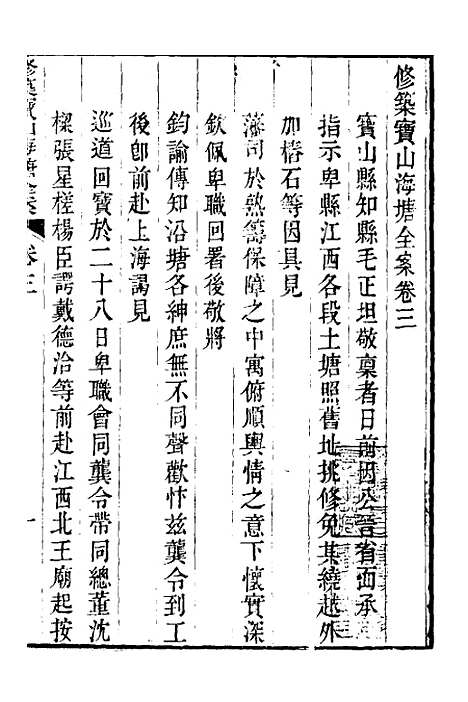 修築寶山海塘全案卷三
寶山縣知縣毛正坦敬稟者日前因公晉省面承
指示卑縣江西各段土塘照舊址挑修免其繞越外
加樁石等因具見
藩司於熟籌保障之中寓俯順輿情之意下懷實深
欽佩卑職回署後敬將
鈞諭傳知沿塘各紳庶無不同聲歡忭玆龔令到工
後卽前赴上海謁見
巡道回寶於二十八日卑職會同龔令帶同總董沈
樑張星槎楊臣諤戴德洽等前赴江西北王廟起按
修築寶山海塘全案 卷三 一